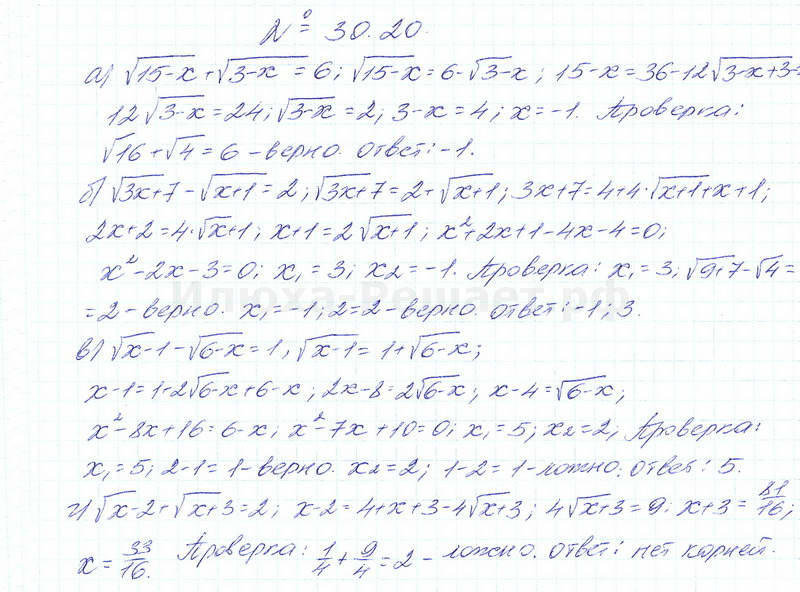 № 30.20.
а) √15-x + √3-x = 6; √15-x = 6-√3-x; 15-x=36-12√3-x+3-
12√3-x=24; √3-x=2; 3-x=4; x=-1. Проверка:
√16+√4=6 - верно. Ответ: -1.
б) √3x+7 - √x+1 = 2; √3x+7 = 2+√x+1; 3x+7=4+4·√x+1+x+1;
2x+2=4·√x+1; x+1=2√x+1; x²+2x+1-4x-4=0;
x²-2x-3=0; x₁=3; x₂=-1. Проверка: x₁=3; √9+7-√4=
=2 - верно. x₁=-1; 2=2 - верно. Ответ: -1; 3.
Илюха-Решает.рф
в) √x-1 - √6-x = 1, √x-1 = 1+√6-x;
x-1=1+2√6-x+6-x; 2x-8=2√6-x; x-4=√6-x;
x²-8x+16=6-x; x²-7x+10=0; x₁=5; x₂=2, Проверка:
x₁=5; 2-1=1 - верно. x₂=2; 1-2=1 - ложно. Ответ: 5.
г) √x-2 + √x+3 = 2; x-2=4+x+3-4√x+3; 4√x+3=9; x+3=81/16;
x=33/16. Проверка: 1/4+9/4=2 - ложно. Ответ: нет корней.